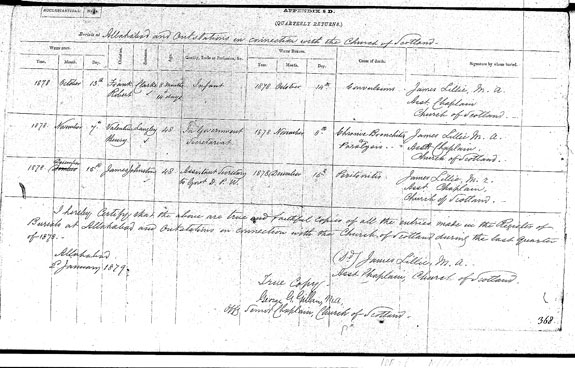 ECCLESIASTICAL
APPENDIX 8 D.
(QUARTERLY RETURNS.)
Burials at Allahabad and Outstations in connection with the Church of Scotland.
WHEN DIED. Age. WHEN BURIED. Cause of death. Signature by whom buried.
Year. Month. Day. Year. Month. Day.
1878 October 13th Frank Robert Clarke 8 months 14 days Infant 1878 October 14th Convulsions James Lillie, M. A.
Asst Chaplain
Church of Scotland.
1878 November 7th Valentine Henry Langley 48 In Government Secretariat 1878 November 8th Chronic Bronchitis Paralysis James Lillie M. A.
Asst Chaplain.
Church of Scotland.
1878 December 15th James Johnston 48 Assistant Secretary to Govt D. P. W. 1878 December Peritonitis James Lillie M.
Asst Chaplain,
Church of Scotland.
I hereby Certify that the above are true and faithful copies of all the entries made in the Register of
Burials at Allahabad and Outstations in connection with the Church of Scotland during the last Quarter
of 1878.
Allahabad
January 1879.
(Sd) James Lillie, M. A.
Asst Chaplain, Church of Scotland.
True Copy
George G. M.A.
Offg Senior Chaplain, Church of Scotland.
368